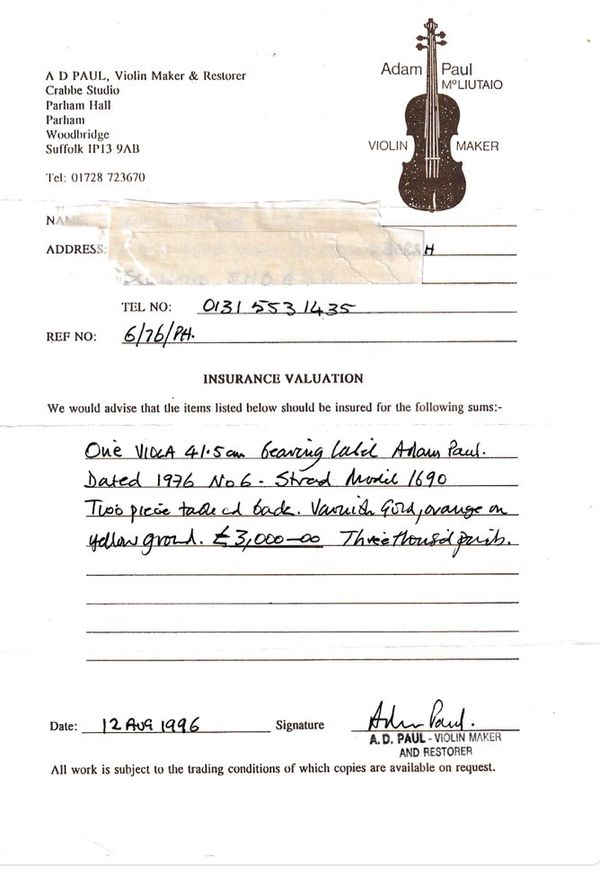 A D PAUL, Violin Maker & Restorer
Crabbe Studio
Parham Hall
Parham
Woodbridge
Suffolk IP13 9AB
Tel: 01728 723670
Adam Paul
MºLIUTAIO
VIOLIN MAKER
NAME
ADDRESS: H
TEL NO: 0131 553 1435
REF NO: 6/76/PH.
INSURANCE VALUATION
We would advise that the items listed below should be insured for the following sums:-
One VIOLA 41.5cm bearing label Adam Paul.
Dated 1976 No 6 - Strad Model 1690
Two piece table and back. Varnish Gold, orange on
yellow ground. £3,000-00 Three thousand pounds.
Date: 12 AUG 1996 Signature Adam Paul.
A.D. PAUL - VIOLIN MAKER
AND RESTORER
All work is subject to the trading conditions of which copies are available on request.